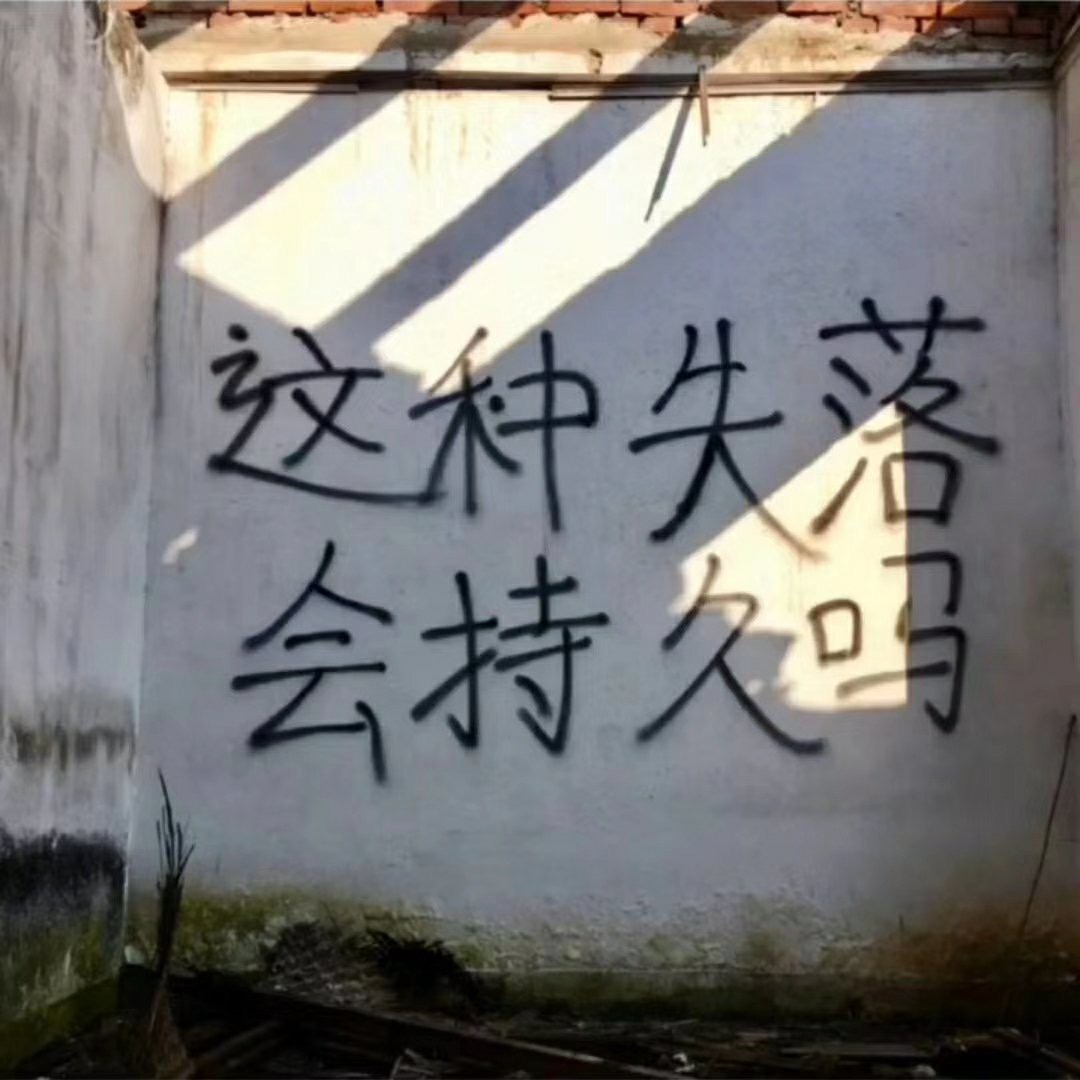 这种失落
会持久吗